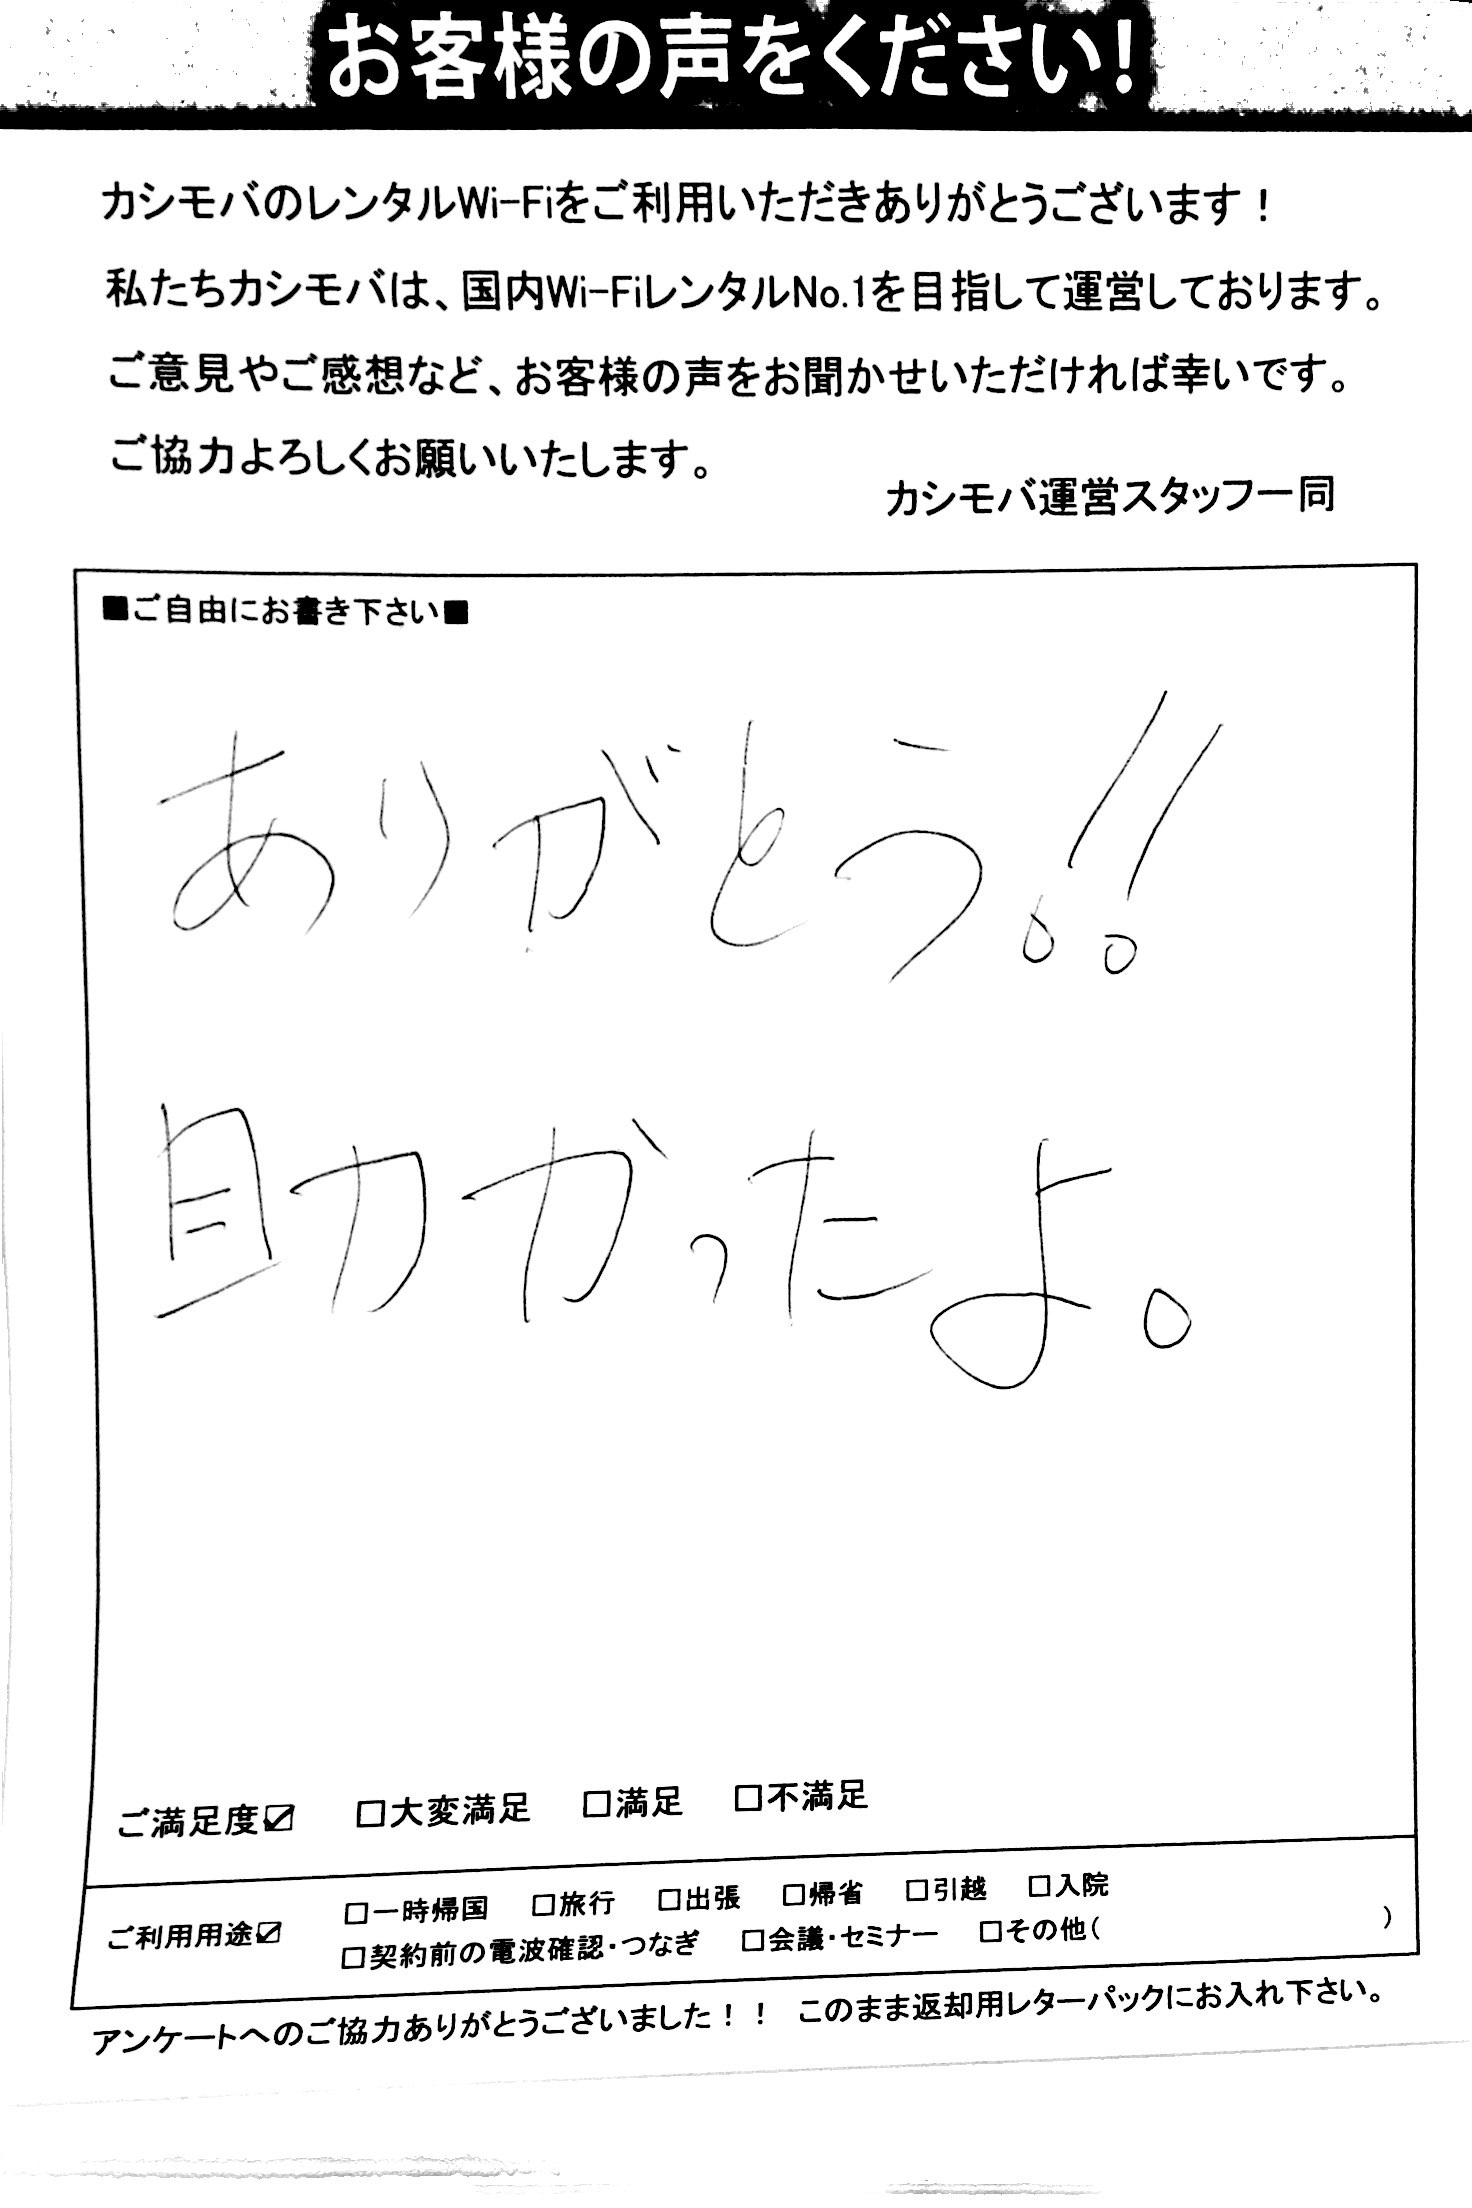 お客様の声をください!
カシモバのレンタルWi-Fiをご利用いただきありがとうございます！
私たちカシモバは、国内Wi-FiレンタルNo.1を目指して運営しております。
ご意見やご感想など、お客様の声をお聞かせいただければ幸いです。
ご協力よろしくお願いいたします。
カシモバ運営スタッフ一同
■ご自由にお書き下さい■
ありがとう!!
助かったよ。
ご満足度☑ □大変満足 □満足 □不満足
ご利用用途☑ □一時帰国 □旅行 □出張 □帰省 □引越 □入院
□契約前の電波確認・つなぎ □会議・セミナー □その他( )
アンケートへのご協力ありがとうございました！！ このまま返却用レターパックにお入れ下さい。